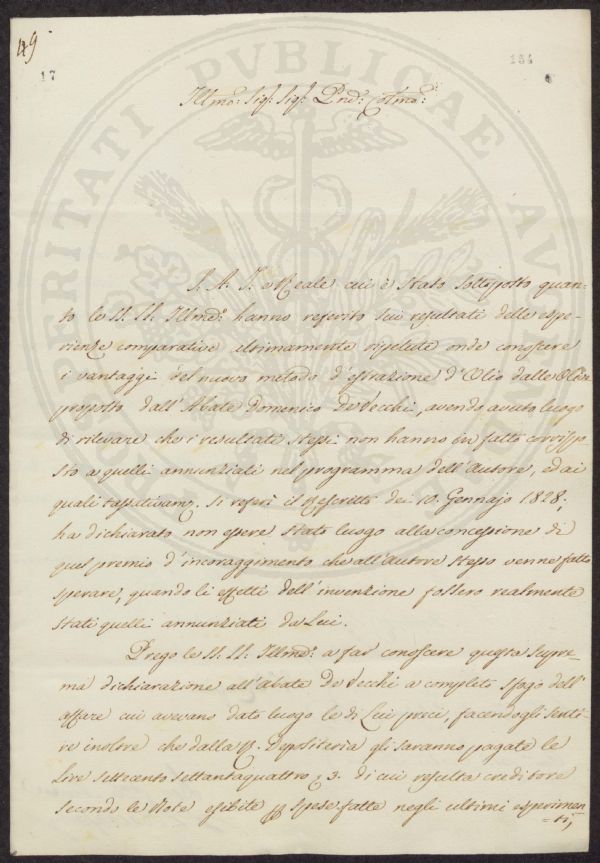 49
17
164
PROSPERITATI PVBLICAE AVGENDAE
Illmo: Sig: Sig: Prd: Colmo:
S. A. I. e Reale cui è stato sottoposto quan-
to le LL. SS. Illme: hanno referito sui resultati delle espe-
rienze comparative ultimamente ripetute onde conoscere
i vantaggi del nuovo metodo d'estrazione d'Olio dalle Olive
proposto dall'Abate Domenico De Vecchi, avendo avuto luogo
di rilevare che i resultati stessi non hanno in fatto corrispo-
sto a quelli annunziati nel programma dell'Autore, ed ai
quali tassativam: si referì il Rescritto dei 10. Gennajo 1828,
ha dichiarato non essere stato luogo alla concessione di
quel premio d'incoraggimento che all'Autore stesso venne fatto
sperare, quando li effetti dell'invenzione fossero realmente
stati quelli annunziati da Lui.
Prego le LL. SS. Illme: a far conoscere questa supre-
ma dichiarazione all'Abate De Vecchi a completo sfogo dell'
affare cui avevano dato luogo le di Lui preci, facendogli senti-
re inoltre che dalla R. Depositeria gli saranno pagate le
Lire settecento settantaquattro 3. di cui resulta creditore
secondo le Note esibite spese fatte negli ultimi esperimen-
ti,